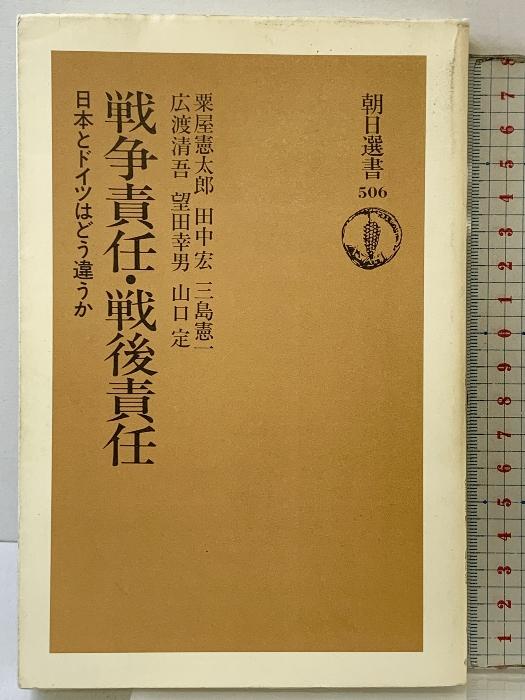 朝日選書
506
粟屋憲太郎 田中宏 三島憲一
広渡清吾 望田幸男 山口定
戦争責任・戦後責任
日本とドイツはどう違うか